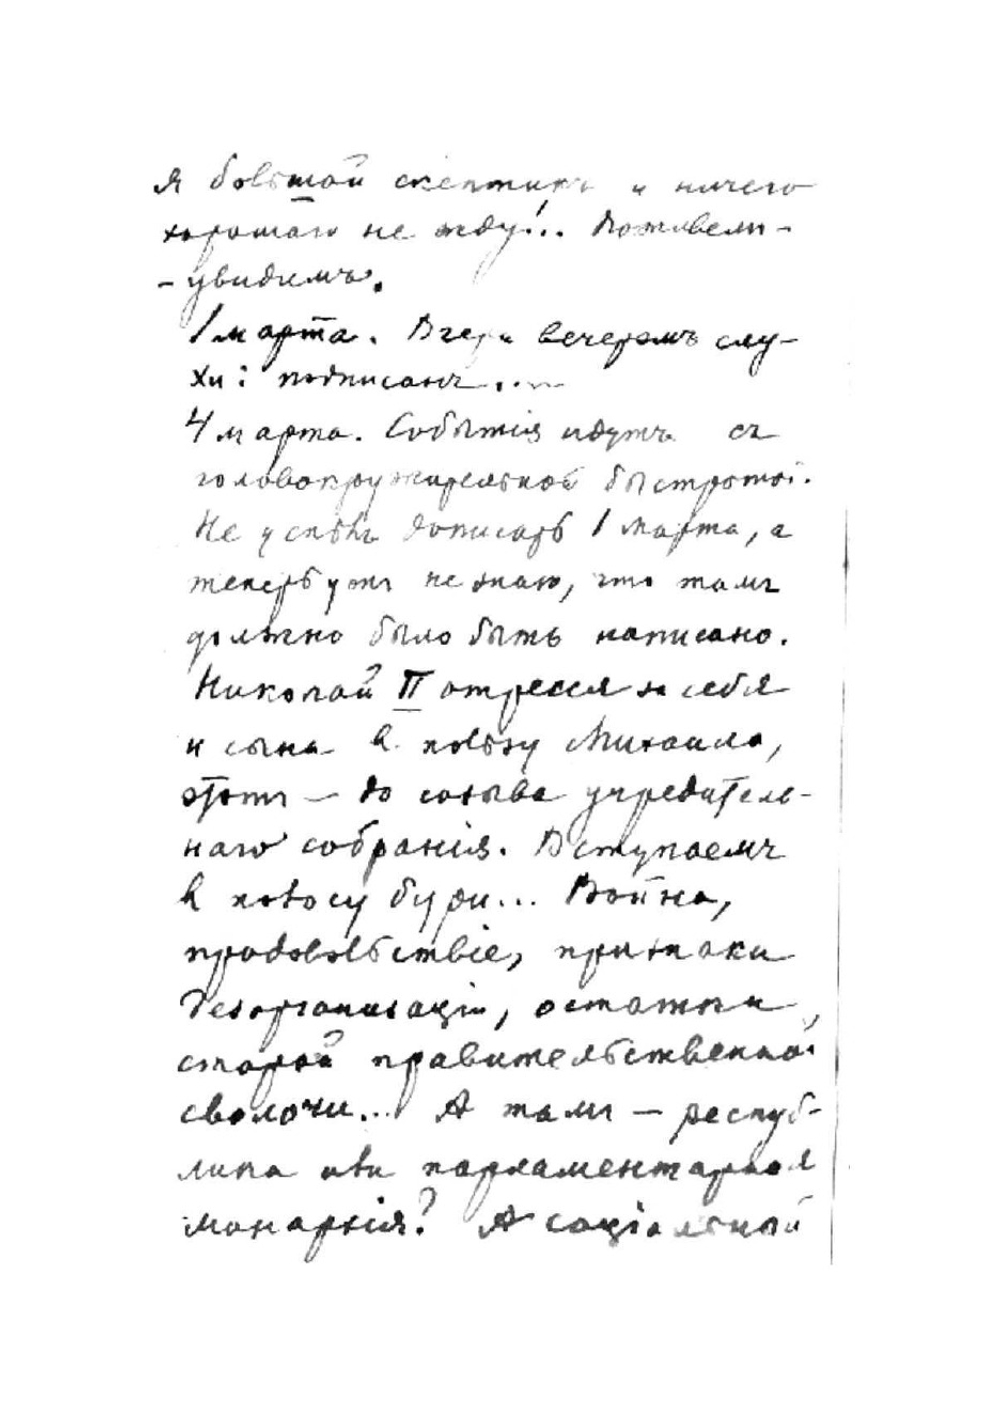 я большой скептикъ и ничего
хорошаго не жду!.. Поживемъ -
- увидимъ.
1 марта. Вчера вечеромъ слу-
хи: подписанъ....
4 марта. Событія идутъ съ
головокружительной быстротой.
Не успѣлъ дописать 1 марта, а
теперь ужъ не знаю, что тамъ
должно было быть написано.
Николай II отрекся за себя
и сына в пользу Михаила,
этотъ — до созыва учредитель-
наго собранія. Вступаемъ
в полосу бури... Война,
продовольствіе, признаки
дезорганизаціи, остатки
старой правительственной
сволочи... А тамъ — респуб-
лика или парламентарная
монархія? А соціальный